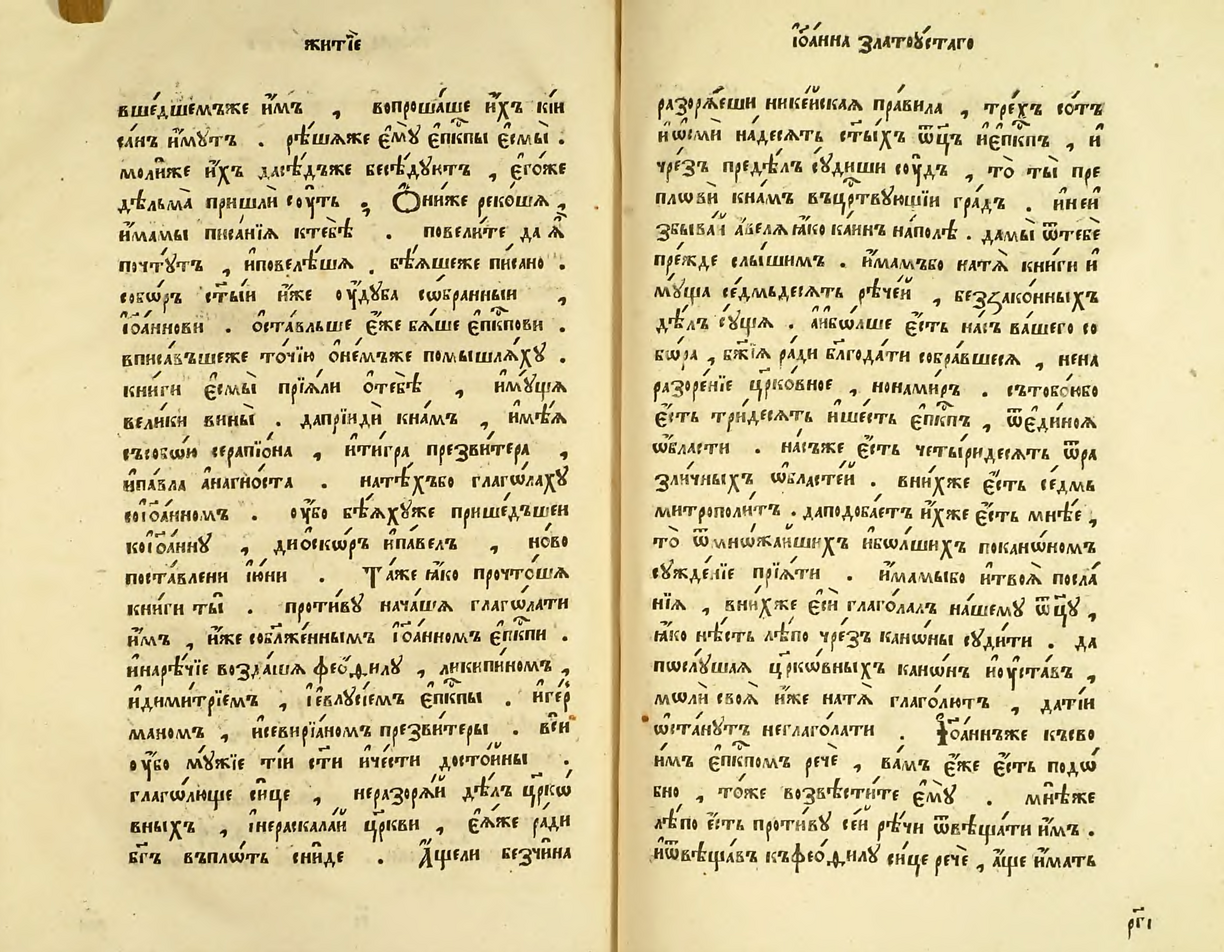 житїе
вше́дшемъже и҆̀мъ , вопроша́ше и҆́хъ кі́и
са́нъ и҆́мꙋтъ . рѣ́шѧже є҆мꙋ̀ є҆пⷭ҇кпы є҆смы̀ .
моли́же и҆́хъ дасѣ́дъже бесѣ́дꙋютъ , є҆го́же
дѣ́льма пришлѝ сꙋ́ть . Ѻ҆ни́же реко́шѧ ,
и҆́мамы писа́нїѧ ктебѣ̀ . повели́те да ѧ҆̀
почтꙋ́тъ , и҆повелѣ́шѧ . бѣ́ѧшеже пи́сано .
собѡ́ръ ст҃ы́и и҆́же ᲂу҆дꙋ́ба сѡ́бранныи ,
і҆ѡа́ннови . ѡ҆ста́вльше є҆́же бѧ́ше є҆пⷭ҇кпови .
вписа́въшеже то́чїю ѻ҆не́мъже помышлѧ́хꙋ .
кни́ги є҆смы̀ прїѧ́ли ѻ҆тебѣ̀ , и҆мꙋ́щѧ
вели́ки вины̀ . дапрїидѝ кна́мъ , и҆мѣ́ѧ
съсобѡ́и серапїо́на , и҆ти́гра презви́тера ,
и҆па́вла а҆нагно́ста . натѣ́хъбо глаго́лахꙋ
соі҆ѡа́нномъ . ᲂу҆́бо бѣ́ѧхꙋже прише́дъшеи
коі҆ѡа́ннꙋ , дио́скѡръ и҆па́велъ , но́во
поста́влени і҆ю́ни . Та́же ꙗ҆́ко прочто́шѧ
кни́ги ты̀ . проти́вꙋ нача́шѧ глаго́лати
и҆̀мъ , и҆́же соблаже́ннымъ і҆ѡа́нномъ є҆пⷭ҇кпи .
и҆нарѣ́чїе возда́шѧ феѻ́филꙋ , ликипи́номъ ,
и҆дими́трїемъ , і҆евлꙋ́сіемъ є҆пⷭ҇кпы . и҆ге́р
маномъ , и҆севирїа́номъ презви́теры . всѝ
ᲂу҆́бо мꙋ́жїе ті́и ст҃и и҆че́сти досто́йны .
глаго́люще си́це , неразорѧ́й дѣ́лъ цр҃кѡ́
вныхъ , і҆нераскала́й цр҃кви , є҆ѧ́же ра́ди
бг҃ъ въпло́ть сни́де . А҆́щели безчи́на
і҆ѡа́нна златоꙋ́стаго
разорѧ́еши нике́йскаѧ пра́вила , тре́хъ со́тъ
и҆ѡсмѝ на́десѧть ст҃ы́хъ ѿц҃ъ и҆є҆пⷭ҇кпъ , и҆
чре́зъ предѣ́лъ сꙋ́диши сꙋ́дъ , то̀ ты̀ пре
пло́ви кна́мъ въцр҃твꙋющїи гра́дъ . и҆неи҆
збыва́й а҆́велѧ ꙗ҆́ко ка́инъ напо́ле . дамы̀ ѿтебѐ
пре́жде слы́шимъ . и҆́мамъбо натѧ̀ кни́ги и҆
мꙋ́ща се́дмьдесѧтъ рѣ́чей , беззако́нныхъ
дѣ́лъ сꙋ́щѧ . а҆ибѡ́лше є҆́сть на́съ ва́шего со
бѡ́ра , бж҃їѧ ра́ди бл҃года́ти собра́вшесѧ , нена
разоре́нїе цр҃ко́вное , нона́миръ . сътобо́юбо
є҆́сть три́десѧть и҆ше́сть є҆пⷭ҇кпъ , ѿє҆ди́ноѧ
ѡ҆́бласти . на́съже є҆́сть четы́ридесѧтъ ѿра
зли́чныхъ ѡ҆бласте́й . вни́хже є҆́сть се́дмь
митрополи́тъ . даподоба́етъ и҆́хже є҆́сть мнѣ́е ,
то̀ ѿмнѡ́жайшихъ и҆бѡ́лшихъ покано́номъ
сꙋжде́нїе прїѧ́ти . и҆́мамыбо и҆твоѧ̀ посла́
нїѧ , вни́хже є҆сѝ глаго́лалъ на́шемꙋ ѿц҃ꙋ ,
ꙗ҆́ко нѣ́сть лѣ́по чре́зъ кано́ны сꙋди́ти . да
послꙋ́шаѧ цр҃ко́вныхъ кано́нъ и҆ᲂу҆ста́въ ,
молѝ своѧ̀ и҆́же натѧ̀ глаго́лютъ , дати́и
ѡ҆ста́нꙋтъ неглаго́лати . І҆ѡа́ннъже късво
и҆́мъ є҆пⷭ҇кпомъ речѐ , ва́мъ є҆́же є҆́сть подо́
бно , то́же возвѣсти́те є҆мꙋ̀ . мнѣ́же
лѣ́по є҆́сть проти́вꙋ се́и рѣ́чи ѿвѣща́ти и҆̀мъ .
и҆ѿвѣща́въ къфеѻ́филꙋ си́це речѐ , а҆́ще и҆́мать
рг҃і